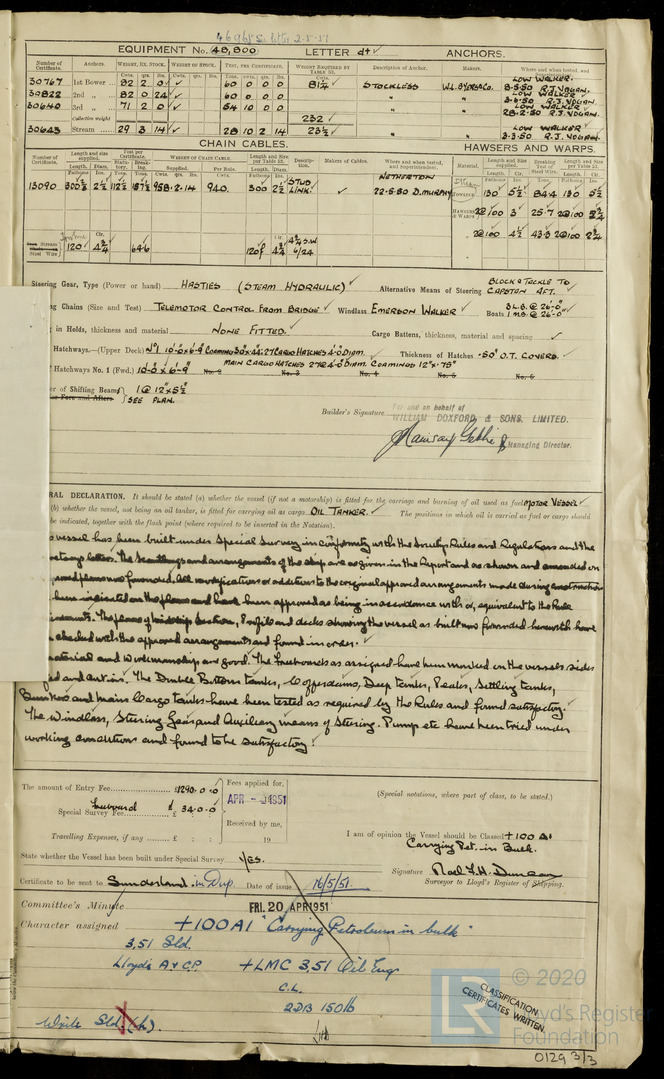 EQUIPMENT No. 48,800 LETTER d+ ANCHORS.
Number of Certificate. Anchors. WEIGHT, EX. STOCK. WEIGHT OF STOCK. TEST, PER CERTIFICATE. WEIGHT REQUIRED BY TABLE 53. Description of Anchor. Makers. Where and when tested, and
Cwts. qrs. lbs. Cwts. qrs. lbs. Tons. cwts. qrs. lbs. Cwts. LOW WALKER.
30767 1st Bower 82 2 0 60 0 0 0 81¼ STOCKLESS W.L. BYERS & CO. 8-3-50 R.J. VOGAN.
30822 2nd „ 82 0 24 60 0 0 0 „ „ LOW WALKER 3-3-50 R.J. VOGAN.
30640 3rd „ 71 2 0 54 10 0 0 „ LOW WALKER 28-2-50 R.J. VOGAN.
Collective weight 232
30643 Stream 29 3 14 28 10 2 14 23½ „ „ LOW WALKER R.J. VOGAN.
CHAIN CABLES. HAWSERS AND WARPS.
Number of Certificate. Length and size supplied. Test per Certificate. WEIGHT OF CHAIN CABLE. Length and Size per Table 53. Description. Makers of Cables. Where and when tested, and Superintendent. Material. Length and size supplied. Breaking Test of Steel Wire. Length and Size per Table 53.
13090 300½ 2½ 112½ 157½ 958-2-14 940. 300 2½ STUD LINK. NETHERTON 22-5-50 D. MURPHY 130 5½ 84.4 130 5½
HAWSERS & WARPS 2@100 3" 25.7 2@100
Stream Steel Wire 120 4¾ 64.6 120f 4¾ 6/24 2@100 4½ 43.3 2@100
Steering Gear, Type (Power or hand) HASTIES (STEAM HYDRAULIC) Alternative Means of Steering BLOCK & TACKLE TO CAPSTAN AFT.
ing Chains (Size and Test) TELEMOTOR CONTROL FROM BRIDGE Windlass EMERSON WALKER Boats 3 L.B. @ 26'-0" 1 M.B. @ 26'-0"
g in Holds, thickness and material NONE FITTED. Cargo Battens, thickness, material and spacing
Hatchways.—(Upper Deck) Nº1 10-0 x 6-9" COAMING 30" x .44: 27 CARGO HATCHES 4'-0" DIAM. Thickness of Hatches .50" O.T. COVERS.
Hatchways No. 1 (Fwd.) 10-0 x 6-9" No. 2 MAIN CARGO HATCHES 27 @ 4'-0" DIAM. COAMINGS 12" x .75" No. 3 No. 4 No. 5 No. 6
r of Shifting Beams 1 @ 12" x 5½"
or Fore and Afters SEE PLAN.
Builder's Signature For and on behalf of
WILLIAM DOXFORD & SONS. LIMITED.
Managing Director.
RAL DECLARATION. It should be stated (a) whether the vessel (if not a motorship) is fitted for the carriage and burning of oil used as fuel MOTOR VESSEL
(b) whether the vessel, not being an oil tanker, is fitted for carrying oil as cargo OIL TANKER. The positions in which oil is carried as fuel or cargo should
be indicated, together with the flash point (where required to be inserted in the Notation).
vessel has been built under Special Survey in conformity with the Society Rules and Regulations and the
letters. The Scantlings and arrangements of the ship are as given in the Report and as shown and amended on
plans now forwarded. All modifications or additions to the original approved arrangements made during construction
been indicated on the plans and have been approved as being in accordance with or, equivalent to the Rule
The plans of Midship Section, Profile and decks showing the vessel as built now forwarded herewith have
checked with the approved arrangements and found in order.
material and workmanship are good. The freeboards as assigned have been marked on the vessel's sides
ed and cut in. The Double Bottom tanks, Cofferdams, Deep tanks, Peaks, Settling tanks,
Bunkers and Main Cargo tanks have been tested as required by the Rules and found satisfactory.
The Windlass, Steering Gear and Auxiliary means of Steering, Pumps etc have been tried under
working conditions and found to be satisfactory.
The amount of Entry Fee £1290.0.0 Fees applied for,
APR 1951 (Special notations, where part of class, to be stated.)
Freeboard £ 34.0.0
Special Survey Fee Received by me,
Travelling Expenses, if any £ : : 19
I am of opinion the Vessel should be Classed +100 A1
Carrying Pet. in Bulk.
State whether the Vessel has been built under Special Survey Yes.
Signature Noel F.H. Duncan
Surveyor to Lloyd's Register of Shipping.
Certificate to be sent to Sunderland. in Dup. Date of issue 16/5/51.
Committee's Minute FRI. 20 APR 1951
Character assigned +100A1 "Carrying Petroleum in bulk"
3,51 Sld.
Lloyds A & C.P. +LMC 3,51 Oil Eng
C.L.
2DB 150lb
CLASSIFICATION CERTIFICATES WRITTEN.
Write Sld. (h)
LR
© 2020
Lloyd's Register
Foundation
0129 3/3